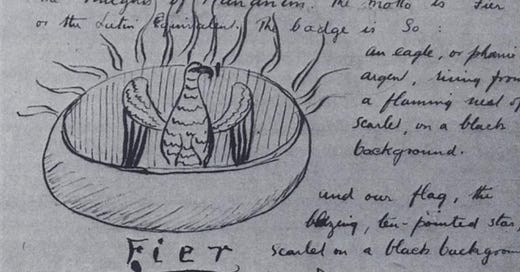 the Knights of Rananim. The motto is Fier
or the Latin Equivalent. The badge is So:
an eagle, or phoenix
argent, rising from
a flaming nest of
scarlet, on a black
background.
and our flag, the
blazing, ten-pointed star,
scarlet on a black background
Fier